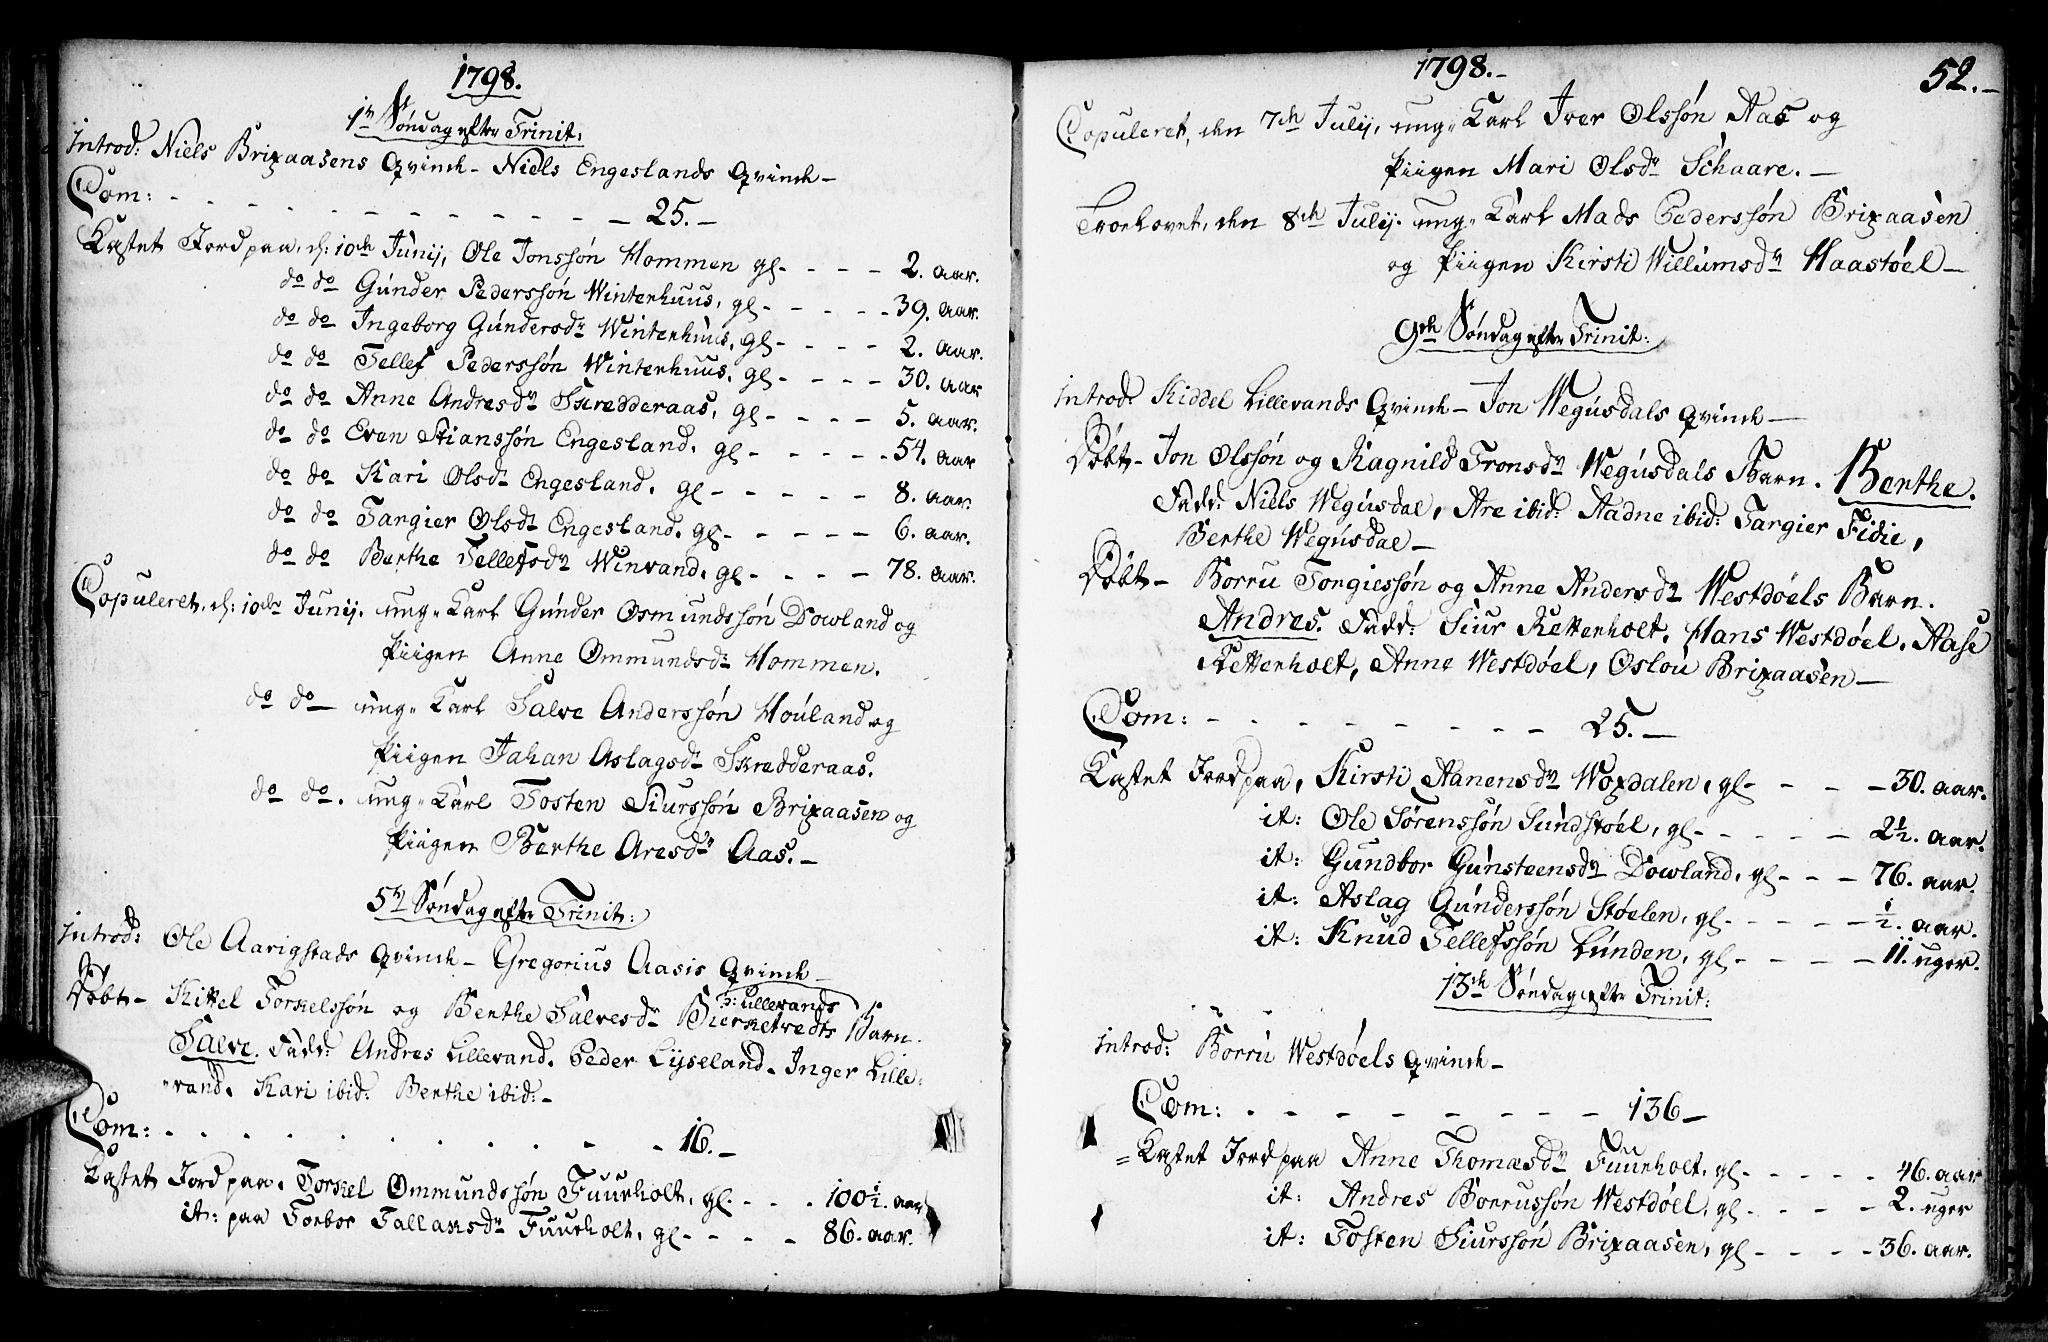 1798.
1ste Søndag efter Trinit:
Introd: Niels Brixaasens Qvinde – Niels Engeslands Qvinde –
Com: – – – – – – – – – – – – 25. –
Kastet Jord paa, d: 10de Junij, Ole Jonssøn Hommen gl – – – – 2. aar.
do do Gunder Pederssøn Winterhuus, gl – – – – – 39. aar.
do do Ingeborg Gundersdr Winterhuus, gl – – – – 2. aar.
do do Tellef Pederssøn Winterhuus, gl – – – – 30. aar
do do Anne Andresdr Skredderaas, gl – – – – 5. aar.
do do Even Stianssøn Engesland, gl – – – – – 54. aar
do do Kari Olsdr Engesland, gl – – – – – 8. aar.
do do Targier Olsdr Engesland, gl – – – – – 6. aar.
do do Berthe Tellefsdr Winvand, gl – – – – 78. aar.
Copuleret, d: 10de Junij, ung-Karl Gunder Osmundssøn Dowland og
Piigen Anne Ommundsdr Hommen.
do do – ung-Karl Salve Anderssøn Houland og
Piigen Jahan Aslagsdr Skredderaas.
do do. ung-Karl Tosten Siurssøn Brixaasen og
Piigen Berthe Aresdr Aas. –
5te Søndag efter Trinit:
Introd: Ole Aarigstads Qvinde – Gregorius Aasis Qvinde –
Døbt – Kittel Torkelssøn og Berthe Salvesdr Bierketvedts Barn.
Lillevands
Salve. Fadd: Andres Lillevand. Peder Lyseland. Inger Lille=
vand. Kari ibid: Berthe ibid: –
Com: – – – – – – – – – – 16. –
Kastet Jord paa, Torkel Ommundssøn Fuurholt, gl – – – 100½. aar
it: paa Torbor Tallaksdr Fuurholt, gl – – – – 86. aar.
1798. –
52. –
Copuleret, den 7de Julij, ung-Karl Iver Olssøn Aas og
Piigen Mari Olsdr Schaare. –
Troelovet, den 8de Julij. ung-Karl Mads Pederssøn Brixaasen
og Piigen Kirsti Willumsdr Haastøel –
9de Søndag efter Trinit:
Introd: Kiddel Lillevands Qvinde – Jon Wegusdals Qvinde –
Døbt – Jon Olssøn og Ragnild Tronsdr Wegusdals Barn. Berthe.
Fadd: Niels Wegusdal, Are ibid: Aadne ibid: Targier Fidie,
Berthe Wegusdal –
Døbt – Borru Torgiessøn og Anne Andersdr Westdøels Barn.
Andres. Fadd: Siur Rettenholt. Hans Westdøel. Aase
Rettenholt, Anne Westdøel, Oslou Brixaasen –
Com: – – – – – – – – 25. –
Kastet Jord paa, Kirsti Aanensdr Woxdalen, gl – – – – 30. aar.
it: Ole Sørenssøn Sundstøel, gl – – – – – 2½. aar.
it: Gundbor Gunsteensdr Dowland, gl – – – 76. aar.
it: Aslag Gunderssøn Støelen, gl – – – – – ½. aar.
it: Knud Tellefssøn Lunden, gl – – – – 11. uger.
13de Søndag efter Trinit:
Introd: Borru Westdøels Qvinde –
Com: – – – – – – – – 136 –
Kastet Jord paa Anne Thomasdr Fuurholt, gl – – – – – 46. aar
it: Andres Borrussøn Westdøel, gl – – – – 2. uger
it: Tosten Siurssøn Brixaasen, gl – – – – 36. aar.